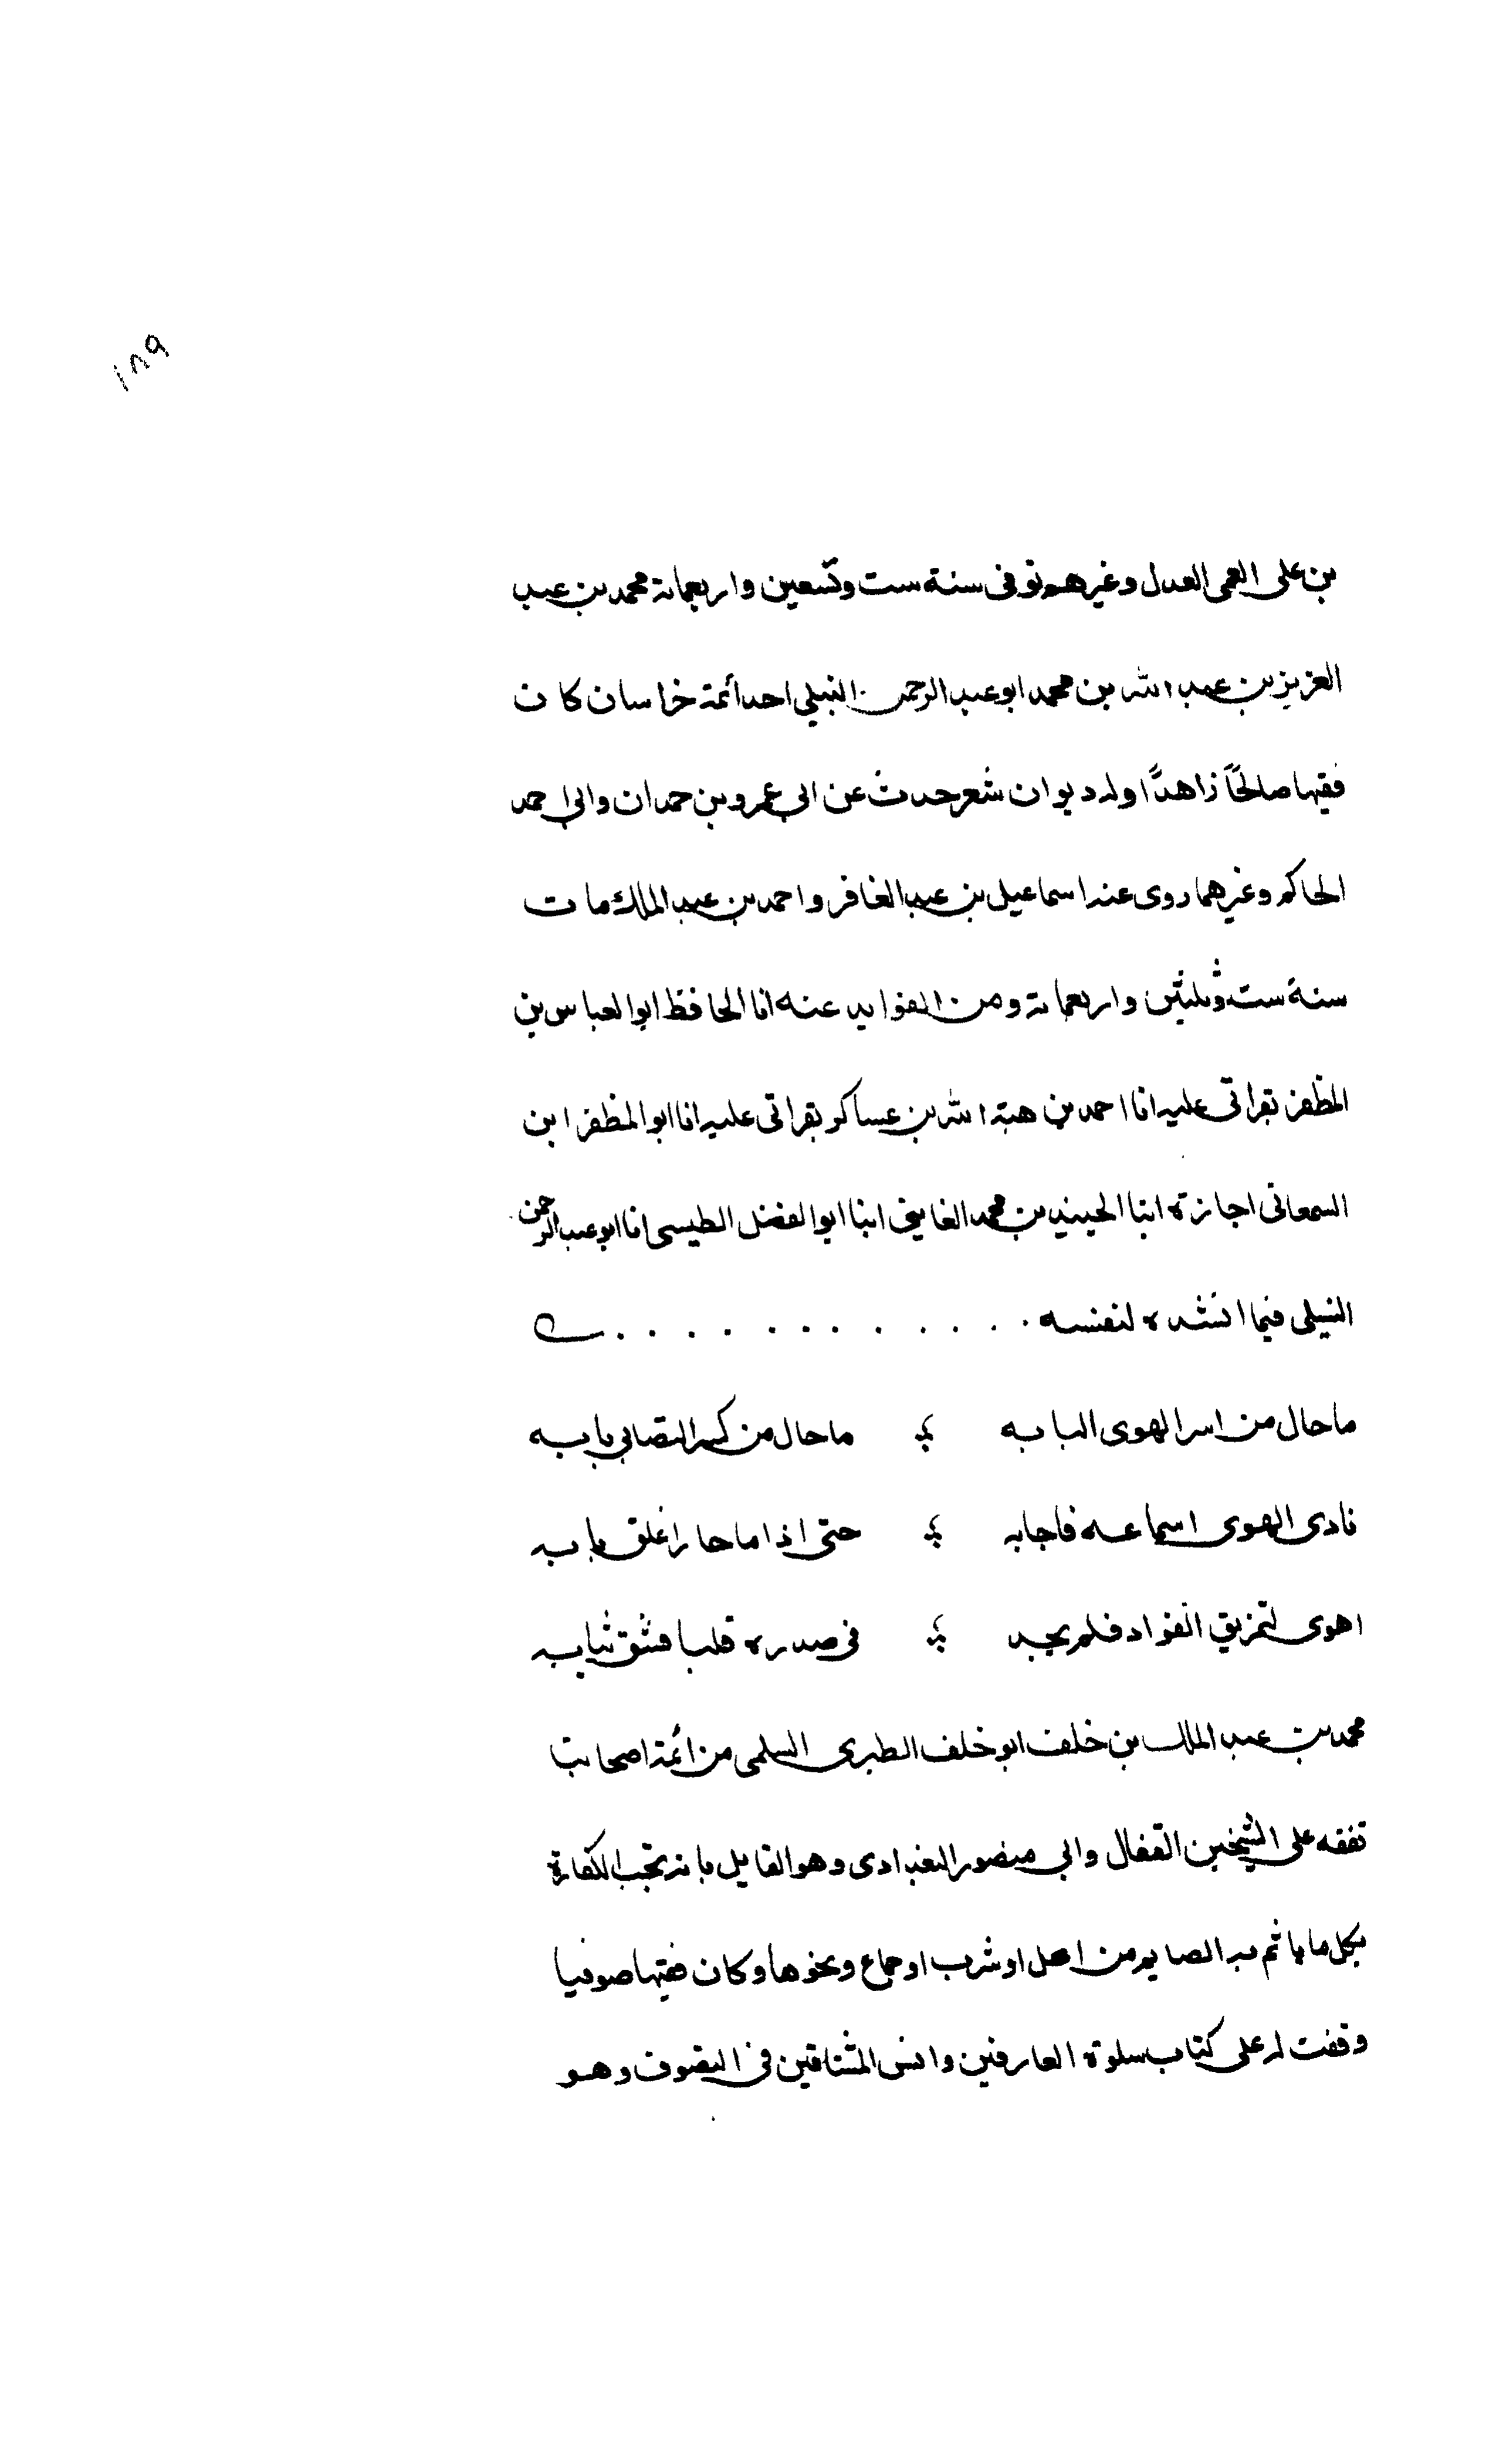 ١٨٩
بن على العمى العدل وغيرهم توفى سنة ست وتسعين واربعماىة محمد بن عبد
العزيز بن عبد الله بن محمد ابو عبد الرحمن النيلي احد ائمة خراسان كان
فقيها صالحًا زاهدًا وله ديوان شعر حدث عن ابي عمرو بن حمدان وابى احمد
الحاكم وغيرهما روى عنه اسماعيل بن عبد الغافر واحمد بن عبد الملك مات
سنة ست وثلثين واربعماىة ومن الفوايد عنه انا الحافظ ابو العباس بن
المظفر بقراتى عليه انا احمد بن هبة الله بن عساكر بقراتى عليه انا ابو المظفر ابن
السمعانى اجازة ابنا الحسين بن محمد ابنا ابو الفضل الطبسى انا ابو عبد الرحمن
النيلى فيما انشده لنفسه
ما حال من اسر الهوى البابه ما حال من كسر التصابي بابه
نادى الهوى اسماعه فاجابه حتى اذا ما حاز اغلق بابه
اهوى لتمزيق الفواد فلم يجد فى صدره قلبا فشق ثيابه
محمد بن عبد الملك بن خلف ابو خلف الطبرى السلمى من ائمة اصحابنا
تفقه على الشيخين القفال وابي منصور البغدادى وهو القايل بانه تجب الكفارة
بكل ما ياثم به الصايم من اكل او شرب او جماع ونحوها وكان فقيها صوفيا
وقفت له على كتاب سلوة العارفين وانس المشتاقين فى التصوف وهو